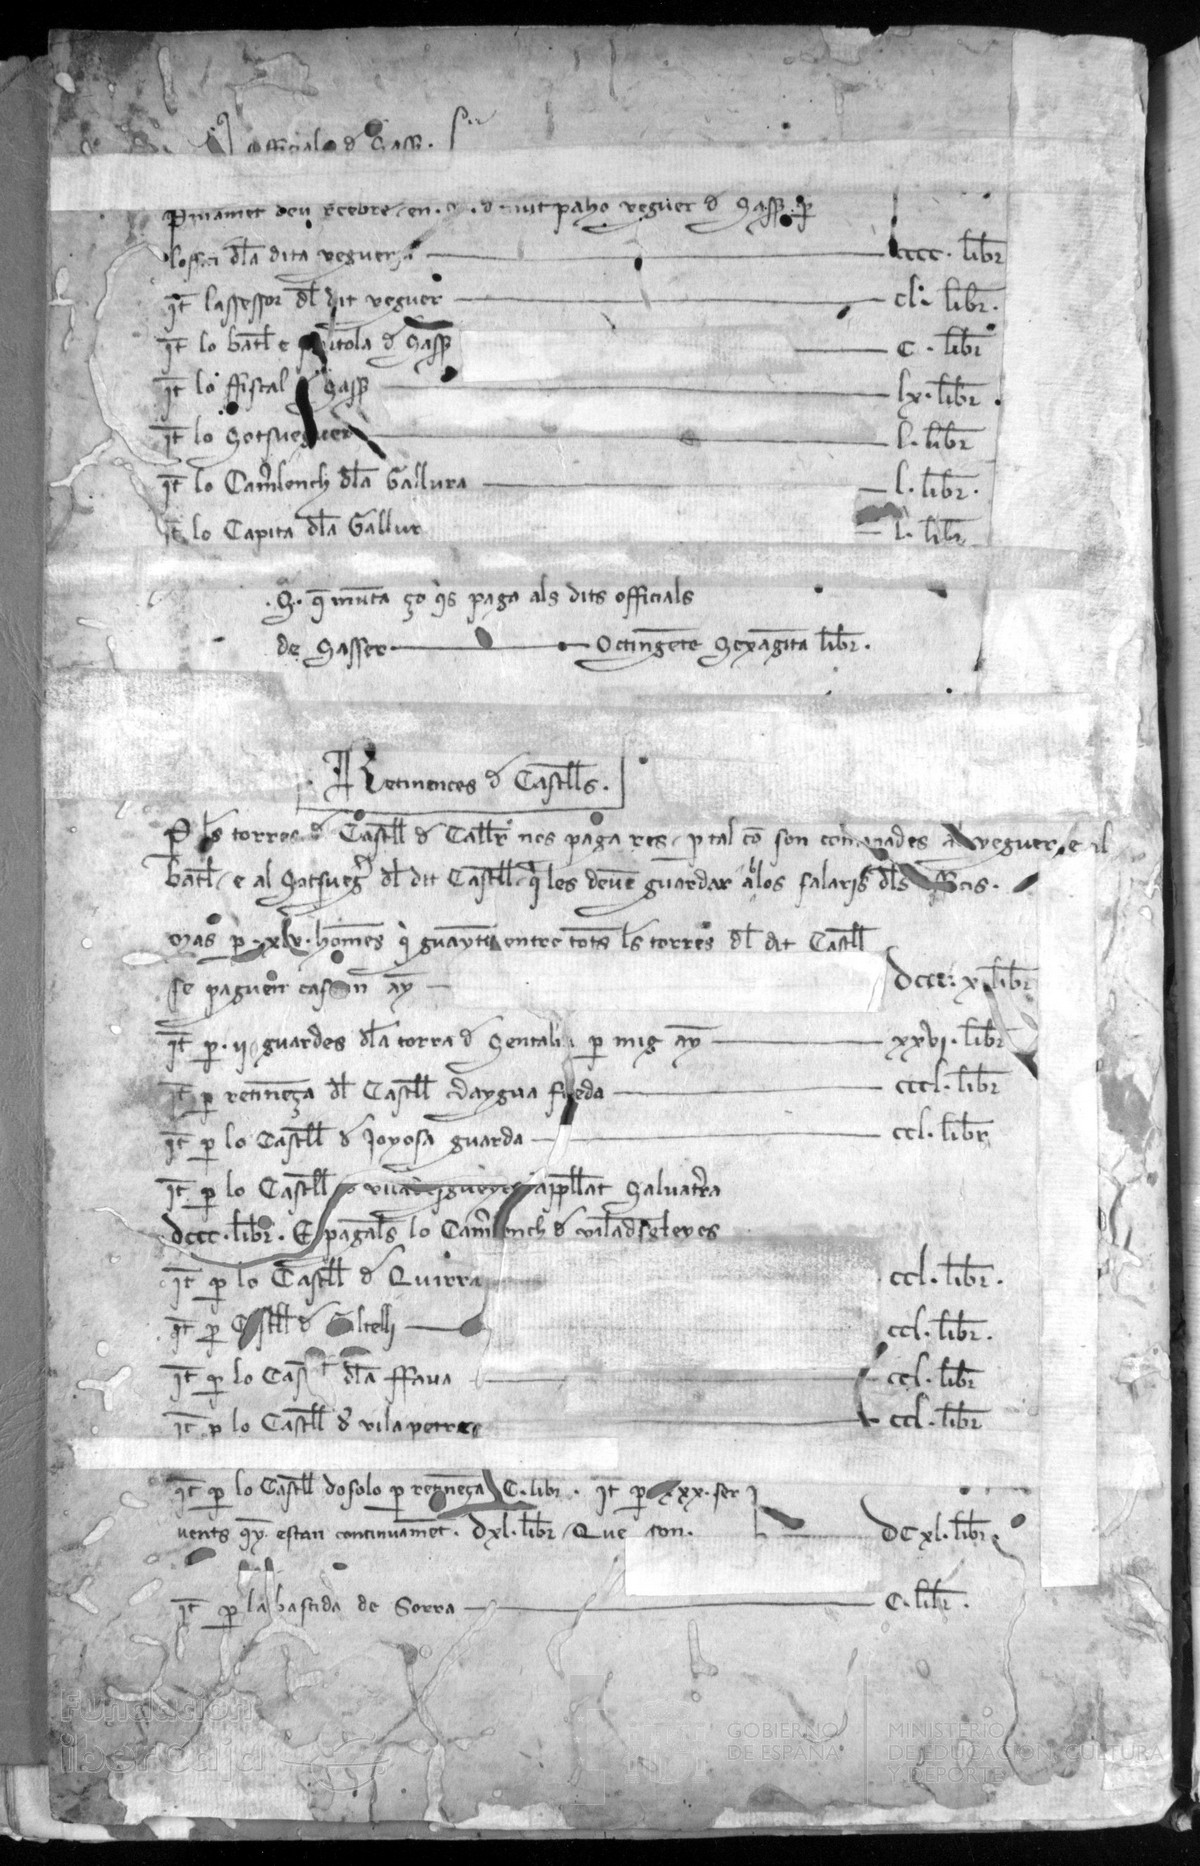 Officials d Sass.
Primamet deu recebre en veguer d Sass. p
loffici dla dita vegueria cccc. libr
It lassessor dl dit veguer cl. libr.
It lo batl e d Sass C. libr
It lo ffiscal Sass lx. libr.
It lo Sotsveguer l. libr
It lo Camlench dla Gallura l. libr.
It lo Capita dla Gallur l. libr
.S. q munta ço qs paga als dits officials
de Sasser Octingete Sexagita libr.
Retinences d Castlls.
P ls torres d Castll d Callr nos paga res p tal co son comanades al veguer e al
batl e al Sotsveg dl dit Castll q les deue guardar ab los salaris dls officis.
Mas p xlv. homes q guayte entre tots ls torres dl dit Castll
se paguen cascun ay dccc. x. libr
It p. ij guardes dla torra d p mig ay xxvj. libr
It p retineça dl Castll daygua freda cccl. libr
It p lo Castll d Joyosa guarda ccl. libr
It p lo Castll appllat Saluatra
dccc. libr. E pagals lo Camlench d
It p lo Castll d Quirra ccl. libr.
It p Castll d Galtelli ccl. libr.
It p lo Cast dla ffaua ccl. libr
It p lo Castll d vilapetres ccl. libr
It p lo Castll dosolo p retineça C. libr. It p xxx. ser
uents qy estan continuamet. dxl. libr Que son. DCxl. libr
It p la bastida de Sorra C. libr.
Fundación
ibercaja
GOBIERNO
DE ESPAÑA
MINISTERIO
DE EDUCACIÓN, CULTURA
Y DEPORTE